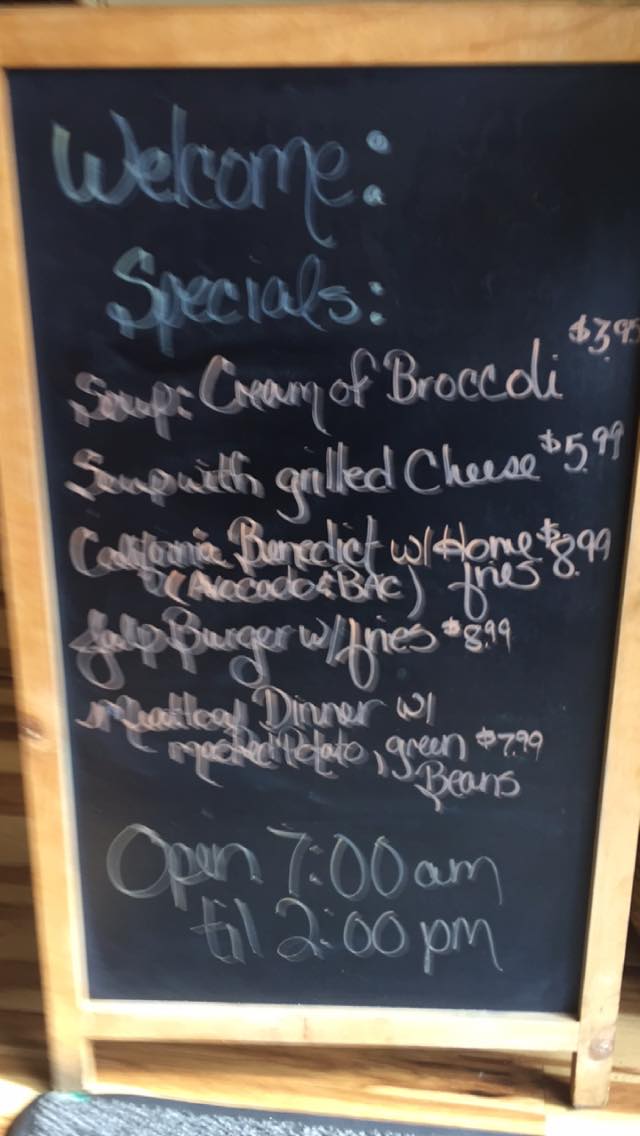 Welcome:
Specials:
$3.95
Soup: Cream of Broccoli
Soup with grilled Cheese $5.99
California Benedict w/ Home $8.99
(Avocado & BAC) fries
Jalp Burger w/ fries $8.99
Meatloaf Dinner w/
mashed Potato, green $7.99
Beans
Open 7:00 am
til 2:00 pm